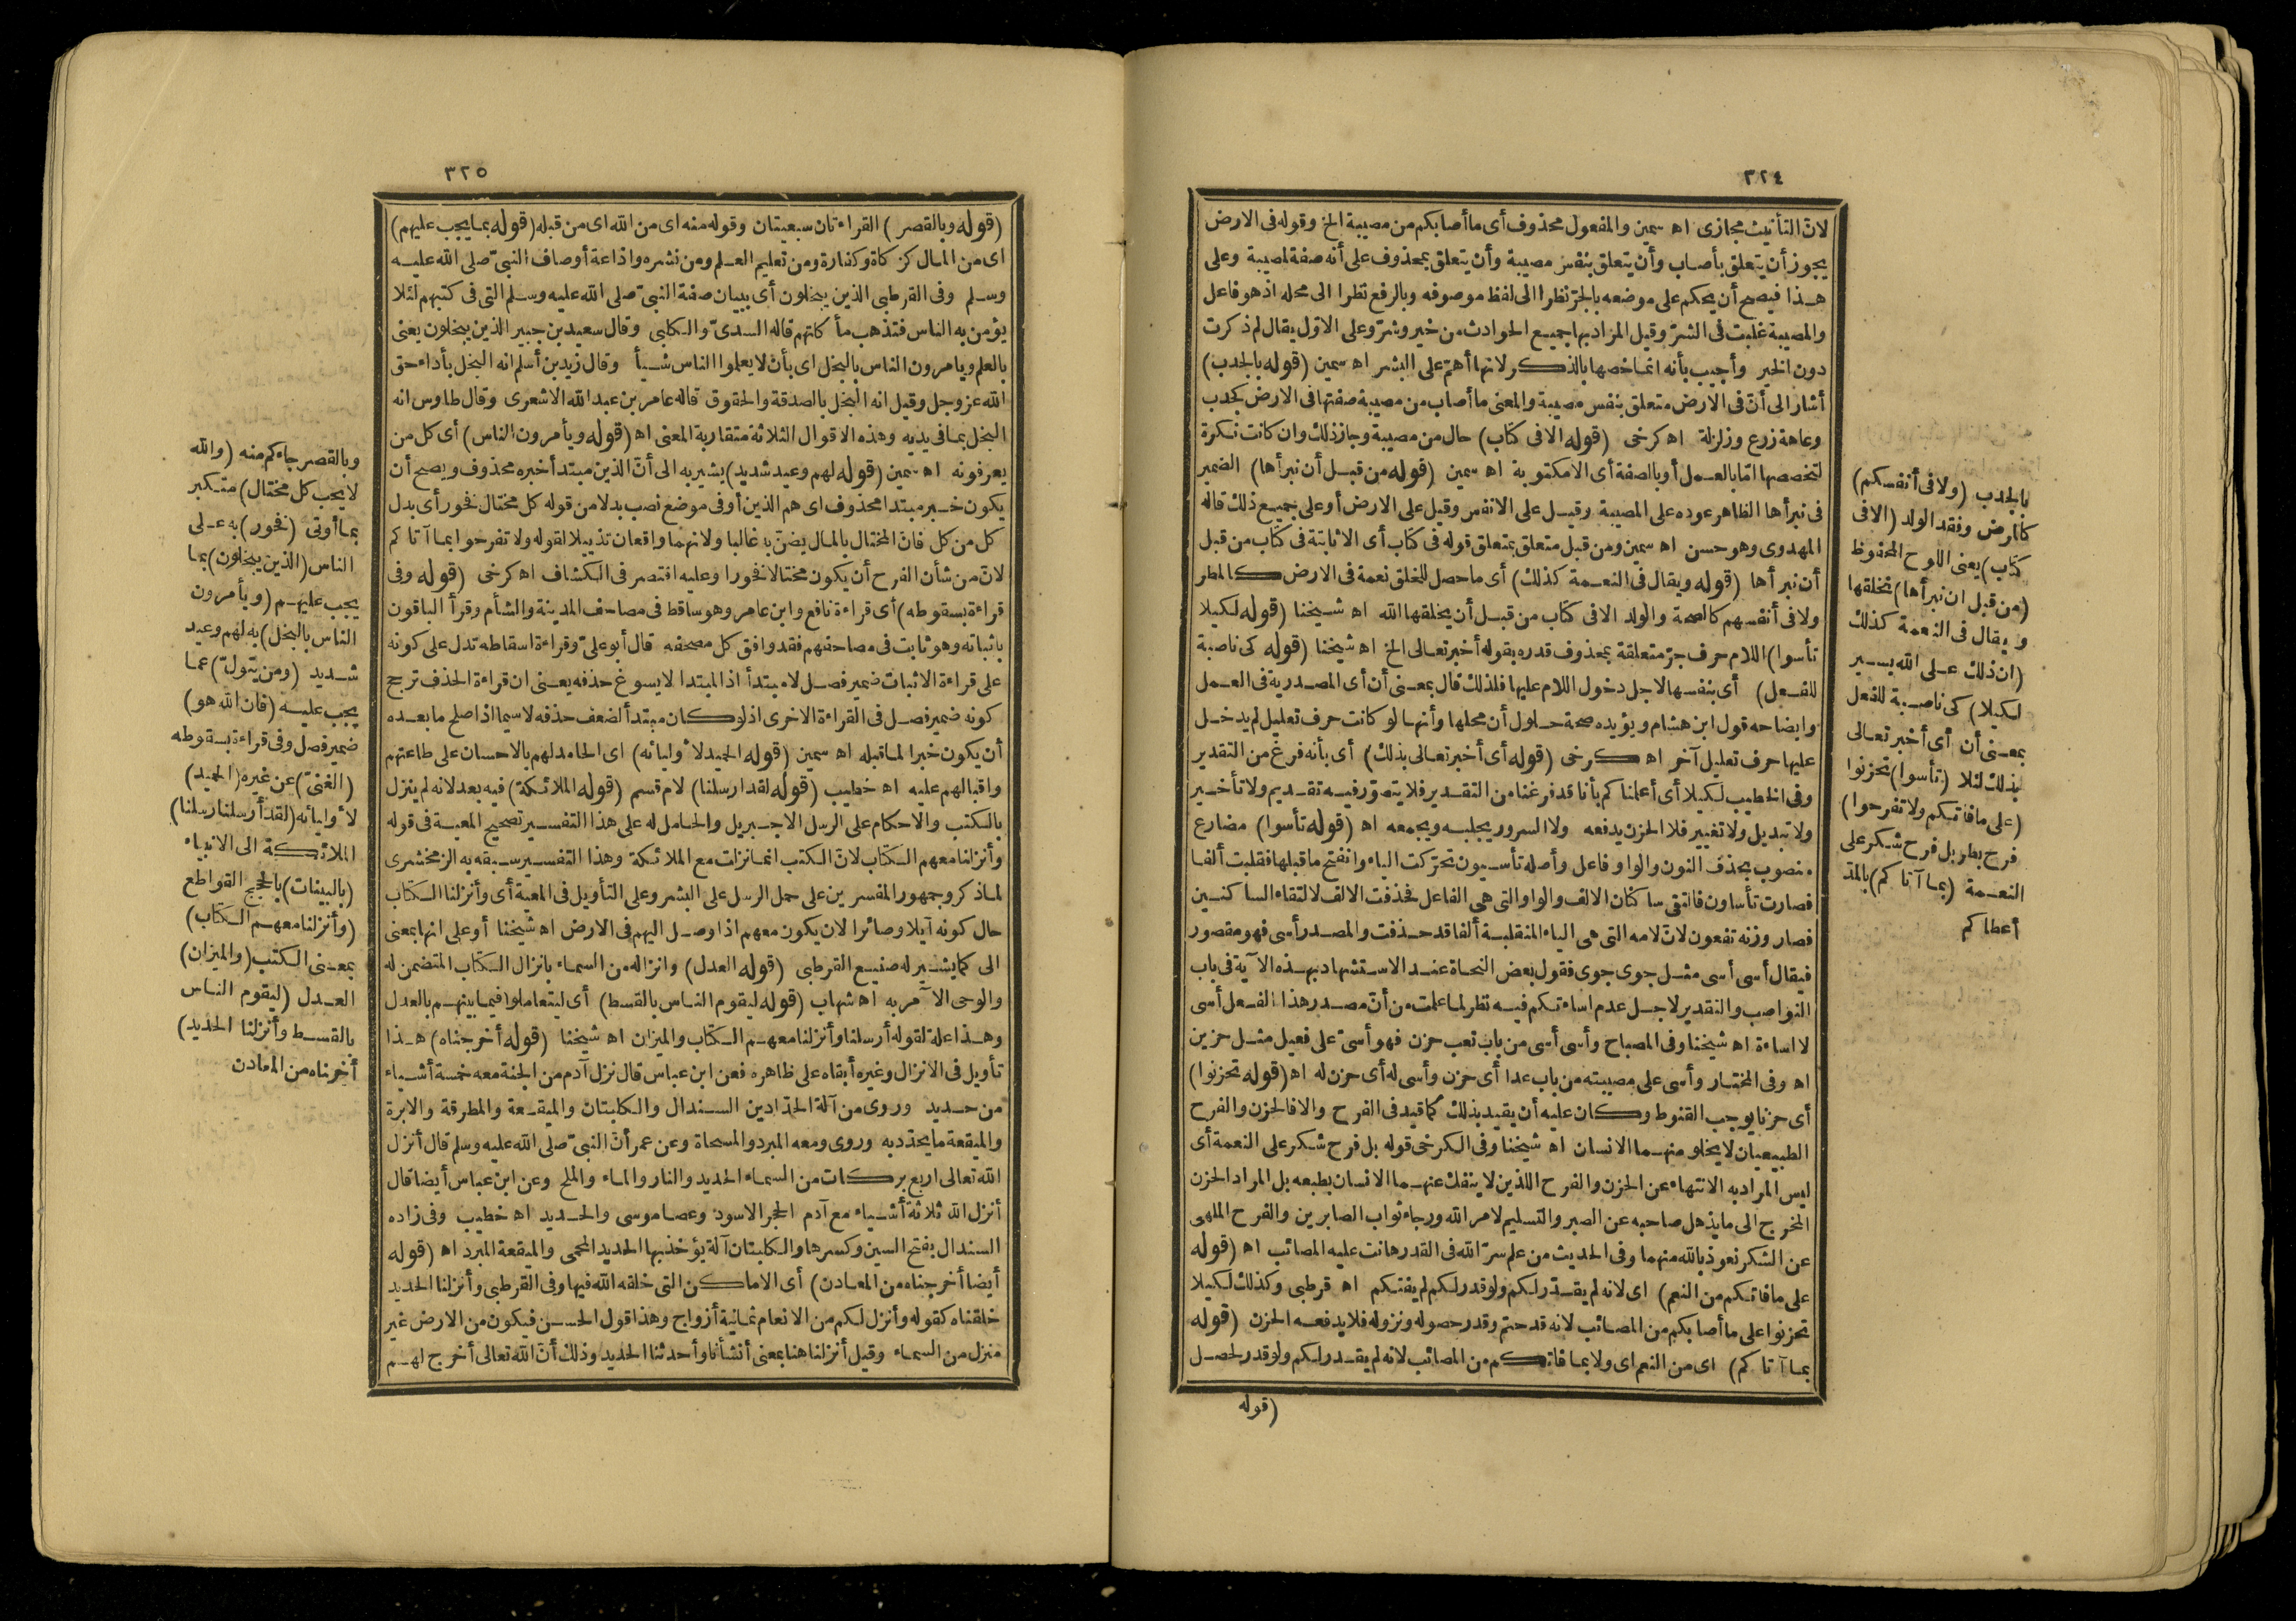 ٣٢٤
لان التأنيث مجازى اه سمين والمفعول محذوف أى ما أصابكم من مصيبة الخ وقوله فى الارض
يجوز أن يتعلق بأصاب وأن يتعلق بنفس مصيبة وأن يتعلق بمحذوف على أنه صفة لمصيبة وعلى
هـذا فيصح أن يحكم على موضعه بالجرّ نظرا الى لفظ موصوفه وبالرفع نظرا الى محله اذ هو فاعل
والمصيبة غلبت فى الشرّ وقيل المراد بها جميع الحوادث من خير وشرّ وعلى الاوّل يقال لم ذكرت
دون الخير وأجيب بأنه انما خصها بالذكر لانها أهمّ على البشر اه سمين (قوله بالجدب)
أشار الى أن فى الارض متعلق بنفس مصيبة والمعنى ما أصاب من مصيبة صفتها فى الارض كجدب
وعاهة زرع وزلزلة اه كرخى (قوله الا فى كتاب) حال من مصيبة وجاز ذلك وان كانت نكرة
لتخصصها امّا بالعمل أو بالصفة أى الا مكتوبة اه سمين (قوله من قبل أن نبرأها) الضمير
فى نبرأها الظاهر عوده على المصيبة وقيل على الانفس وقيل على الارض أو على جميع ذلك قاله
المهدوى وهو حسن اه سمين ومن قبل متعلق بمتعلق قوله فى كتاب أى الا ثابتة فى كتاب من قبل
أن نبرأها (قوله ويقال فى النعمة كذلك) أى ما حصل للخلق نعمة فى الارض كالمطر
ولا فى أنفسهم كالصحة والولد الا فى كتاب من قبل أن يخلقها الله اه شيخنا (قوله لكيلا
تأسوا) اللام حرف جرّ متعلقة بمحذوف قدره بقوله أخبر تعالى الخ اه شيخنا (قوله كى ناصبة
للفعل) أى بنفسها لاجل دخول اللام عليها فلذلك قال بمعنى أن أى المصدرية فى العمل
وايضاحه قول ابن هشام ويؤيده صحة حلول أن محلها وأنها لو كانت حرف تعليل لم يدخل
عليها حرف تعليل آخر اه كرخى (قوله أى أخبر تعالى بذلك) أى بأنه فرغ من التقدير
وفى الخطيب لكيلا أى أعلمناكم بأنا قد فرغنا من التقدير فلا يتصوّر فيه تقديم ولا تأخير
ولا تبديل ولا تغيير فلا الحزن يدفعه ولا السرور يجلبه ويجمعه اه (قوله تأسوا) مضارع
منصوب بحذف النون والواو فاعل وأصله تأسيون تحرّكت الياء وانفتح ما قبلها فقلبت ألفا
فصارت تأساون فالتقى ساكنان الالف والواو التى هى الفاعل فحذفت الالف لالتقاء الساكنين
فصار وزنه تفعون لان لامه التى هى الياء المنقلبة ألفا قد حذفت والمصدر أسى فهو مقصور
فيقال أسى أسى مثل جوى جوى فقول بعض النحاة عند الاستشهاد بهذه الآية فى باب
النواصب والتقدير لاجل عدم اساءتكم فيه نظر لما علمت من أن مصدر هذا الفعل أسى
لا اساءة اه شيخنا وفى المصباح وأسى أسى من باب تعب حزن فهو أسىّ على فعيل مثل حزين
اه وفى المختار وأسى على مصيبته من باب عدا أى حزن وأسى له أى حزن له اه (قوله تحزنوا)
أى حزنا يوجب القنوط وكان عليه أن يقيد بذلك كما قيد فى الفرح والا فالحزن والفرح
الطبيعيان لا يخلو منهما الانسان اه شيخنا وفى الكرخى قوله بل فرح شكر على النعمة أى
ليس المراد به الانتهاء عن الحزن والفرح اللذين لا ينفك عنهما الانسان بطبعه بل المراد الحزن
المخرج الى ما يذهل صاحبه عن الصبر والتسليم لامر الله ورجاء ثواب الصابرين والفرح الملهى
عن الشكر نعوذ بالله منهما وفى الحديث من علم سرّ الله فى القدر هانت عليه المصائب اه (قوله
على ما فاتكم من النعم) اى لانه لم يقدّر لكم ولو قدر لكم لم يفتكم اه قرطبى وكذلك لكيلا
تحزنوا على ما أصابكم من المصائب لانه قد حتم وقدر حصوله ونزوله فلا يدفعه الحزن (قوله
بما آتاكم) اى من النعم اى ولا بما فاتكم من المصائب لانه لم يقدر لكم ولو قدر لحصل
(قوله
بالجدب (ولا فى أنفسكم)
كالمرض وفقد الولد (الا فى
كتاب) يعنى اللوح المحفوظ
(من قبل ان نبرأها) نخلقها
ويقال فى النعمة كذلك
(ان ذلك على الله يسير
لكيلا) كى ناصبة للفعل
بمعنى أن أى أخبر تعالى
بذلك لئلا (تأسوا) تحزنوا
(على ما فاتكم ولا تفرحوا)
فرح بطر بل فرح شكر على
النعمة (بما آتاكم) بالمدّ
أعطاكم
٣٢٥
(قوله وبالقصر) القراءتان سبعيتان وقوله منه اى من الله اى من قبله (قوله بما يجب عليهم)
اى من المال كزكاة وكفارة ومن تعليم العلم ومن نشره واذاعة أوصاف النبىّ صلى الله عليه
وسلم وفى القرطبى الذين يبخلون أى ببيان صفة النبىّ صلى الله عليه وسلم التى فى كتبهم لئلا
يؤمن به الناس فتذهب مأكلتهم قاله السدىّ والكلبى وقال سعيد بن جبير الذين يبخلون يعنى
بالعلم ويامرون الناس بالبخل اى بأن لا يعلموا الناس شيأ وقال زيد بن أسلم انه البخل بأداء حق
الله عز وجل وقيل انه البخل بالصدقة والحقوق قاله عامر بن عبد الله الاشعرى وقال طاوس انه
البخل بما فى يديه وهذه الاقوال الثلاثة متقاربة المعنى اه (قوله ويأمرون الناس) أى كل من
يعرفونه اه سمين (قوله لهم وعيد شديد) يشير به الى أن الذين مبتدأ خبره محذوف ويصح أن
يكون خبر مبتدا محذوف اى هم الذين أو فى موضع نصب بدلا من قوله كل مختال فخور أى بدل
كل من كل فان المختال بالمال يضنّ به غالبا ولانهما واقعان تذييلا لقوله ولا تفرحوا بما آتاكم
لان من شأن الفرح أن يكون مختالا فخورا وعليه اقتصر فى الكشاف اه كرخى (قوله وفى
قراءة بسقوطه) أى قراءة نافع وابن عامر وهو ساقط فى مصاحف المدينة والشأم وقرأ الباقون
باثباته وهو ثابت فى مصاحفهم فقد وافق كل مصحفه قال أبو علىّ وقراءة اسقاطه تدل على كونه
على قراءة الاثبات ضمير فصل لا مبتدأ اذ المبتدا لا يسوغ حذفه يعنى ان قراءة الحذف ترجح
كونه ضمير فصل فى القراءة الاخرى اذ لو كان مبتدأ لضعف حذفه لا سيما اذا صلح ما بعده
أن يكون خبرا لما قبله اه سمين (قوله الحميد لأوليائه) اى الحامد لهم بالاحسان على طاعتهم
واقبالهم عليه اه خطيب (قوله لقد ارسلنا) لام قسم (قوله الملائكة) فيه بعد لانه لم ينزل
بالكتب والاحكام على الرسل الا جبريل والحامل له على هذا التفسير تصحيح المعية فى قوله
وأنزلنا معهم الكتاب لان الكتب انما نزلت مع الملائكة وهذا التفسير سبقه به الزمخشرى
لما ذكر وجمهور المفسرين على حمل الرسل على البشر وعلى التأويل فى المعية أى وأنزلنا الكتاب
حال كونه آيلا وصائرا لان يكون معهم اذا وصل اليهم فى الارض اه شيخنا أو على انها بمعنى
الى كما يشير له صنيع القرطبى (قوله العدل) وانزاله من السماء بانزال الكتاب المتضمن له
والوحى الآمر به اه شهاب (قوله ليقوم الناس بالقسط) أى ليتعاملوا فيما بينهم بالعدل
وهذا علة لقوله أرسلنا وأنزلنا معهم الكتاب والميزان اه شيخنا (قوله أخرجناه) هذا
تأويل فى الانزال وغيره أبقاه على ظاهره فعن ابن عباس قال نزل آدم من الجنة معه خمسة أشياء
من حديد وروى من آلة الحدّادين السندال والكلبتان والميقعة والمطرقة والابرة
والميقعة ما يحدّد به وروى ومعه المبرد والمسحاة وعن عمر أن النبىّ صلى الله عليه وسلم قال أنزل
الله تعالى اربع بركات من السماء الحديد والنار والماء والملح وعن ابن عباس أيضا قال
أنزل الله ثلاثة أشياء مع آدم الحجر الاسود وعصا موسى والحديد اه خطيب وفى زاده
السندال بفتح السين وكسرها والكلبتان آلة يؤخذ بها الحديد المحمى والميقعة المبرد اه (قوله
أيضا أخرجناه من المعادن) أى الاماكن التى خلقه الله فيها وفى القرطبى وأنزلنا الحديد
خلقناه كقوله وأنزل لكم من الانعام ثمانية أزواج وهذا قول الحسن فيكون من الارض غير
منزل من السماء وقيل أنزلنا هنا بمعنى أنشأنا وأحدثنا الحديد وذلك أن الله تعالى أخرج لهم
وبالقصر جاءكم منه (والله
لا يحب كل مختال) متكبر
بما أوتى (فخور) به على
الناس (الذين يبخلون) بما
يجب عليهم (ويأمرون
الناس بالبخل) به لهم وعيد
شديد (ومن يتولّ) عما
يجب عليه (فان الله هو)
ضمير فصل وفى قراءة بسقوطه
(الغنىّ) عن غيره (الحميد)
لأوليائه (لقد أرسلنا رسلنا)
الملائكة الى الانبياء
(بالبينات) بالحجج القواطع
(وأنزلنا معهم الكتاب)
بمعنى الكتب (والميزان)
العدل (ليقوم الناس
بالقسط وأنزلنا الحديد)
أخرجناه من المعادن